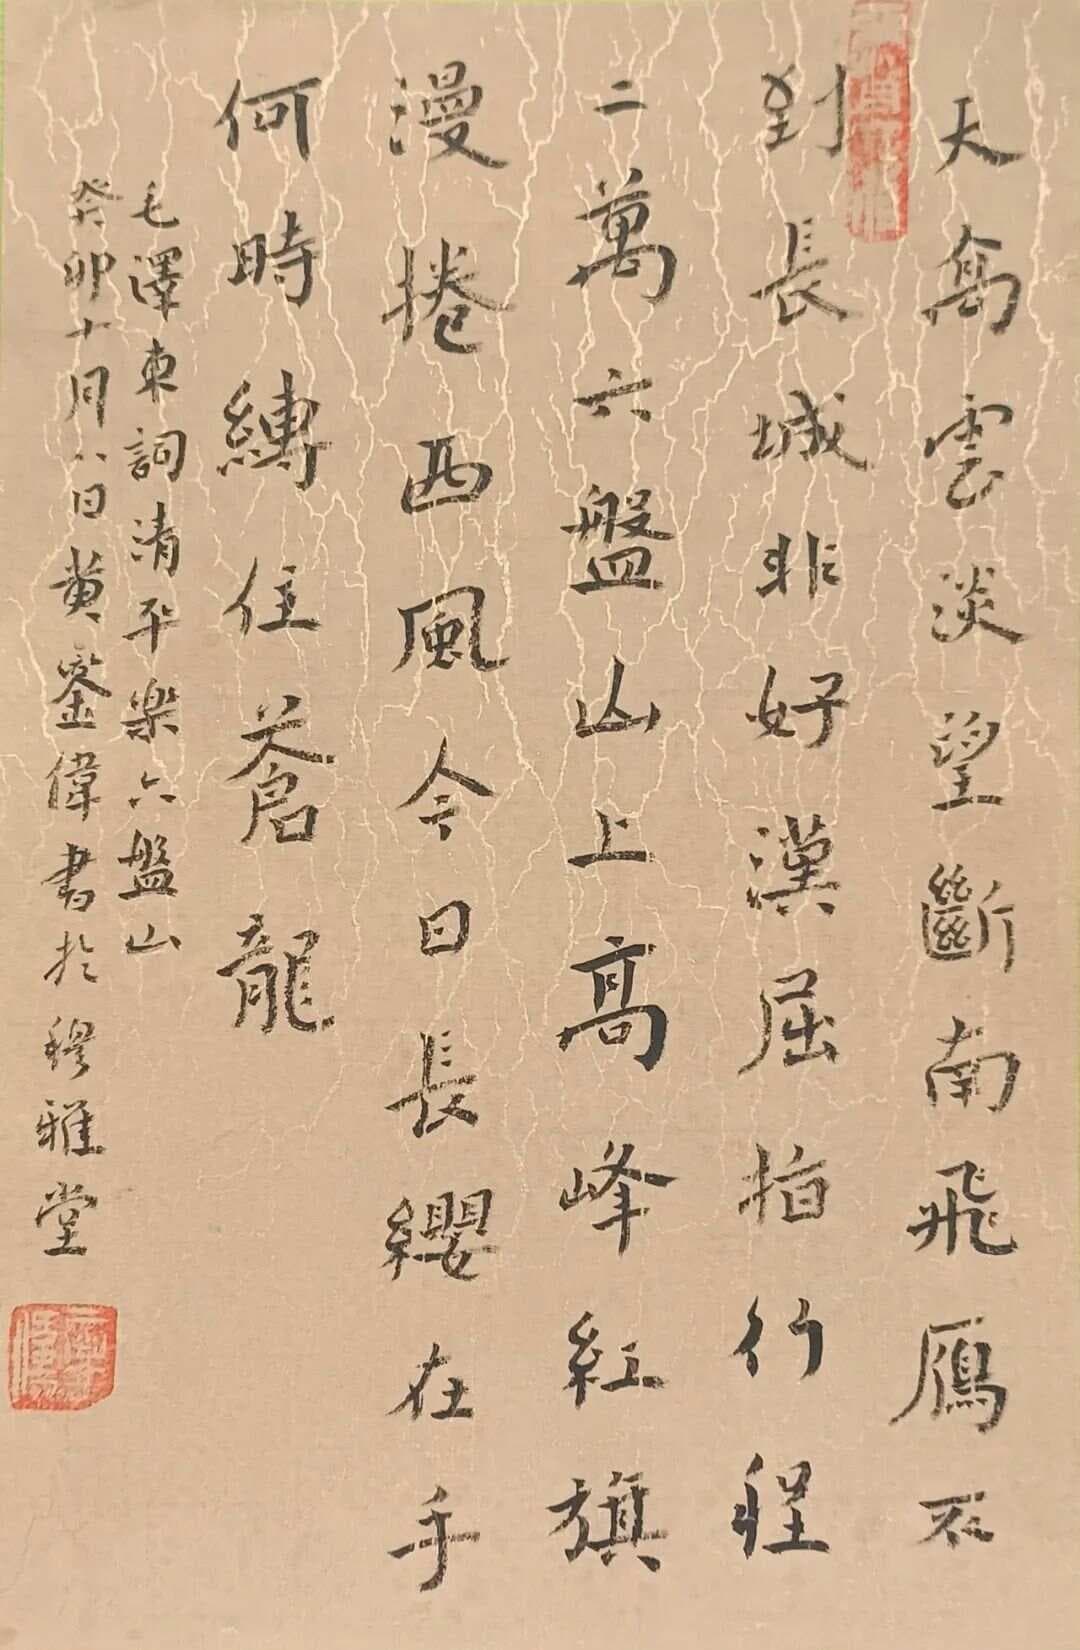 天高雲淡望斷南飛鴈不
到長城非好漢屈指行程
二萬六盤山上高峰紅旗
漫捲西風今日長纓在手
何時縛住蒼龍
毛澤東詞清平樂六盤山
癸卯十月八日黄鋆偉書於穆雅堂